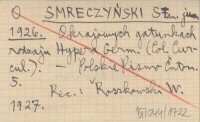 O SMRECZYŃSKI Stan. jun.
1926. O krajowych gatunkach
rodzaju Hypera Germ. (Col. Cur-
cul.). — Polskie Pismo Entom.
5.
Rec.: Roszkowski W.
1927.